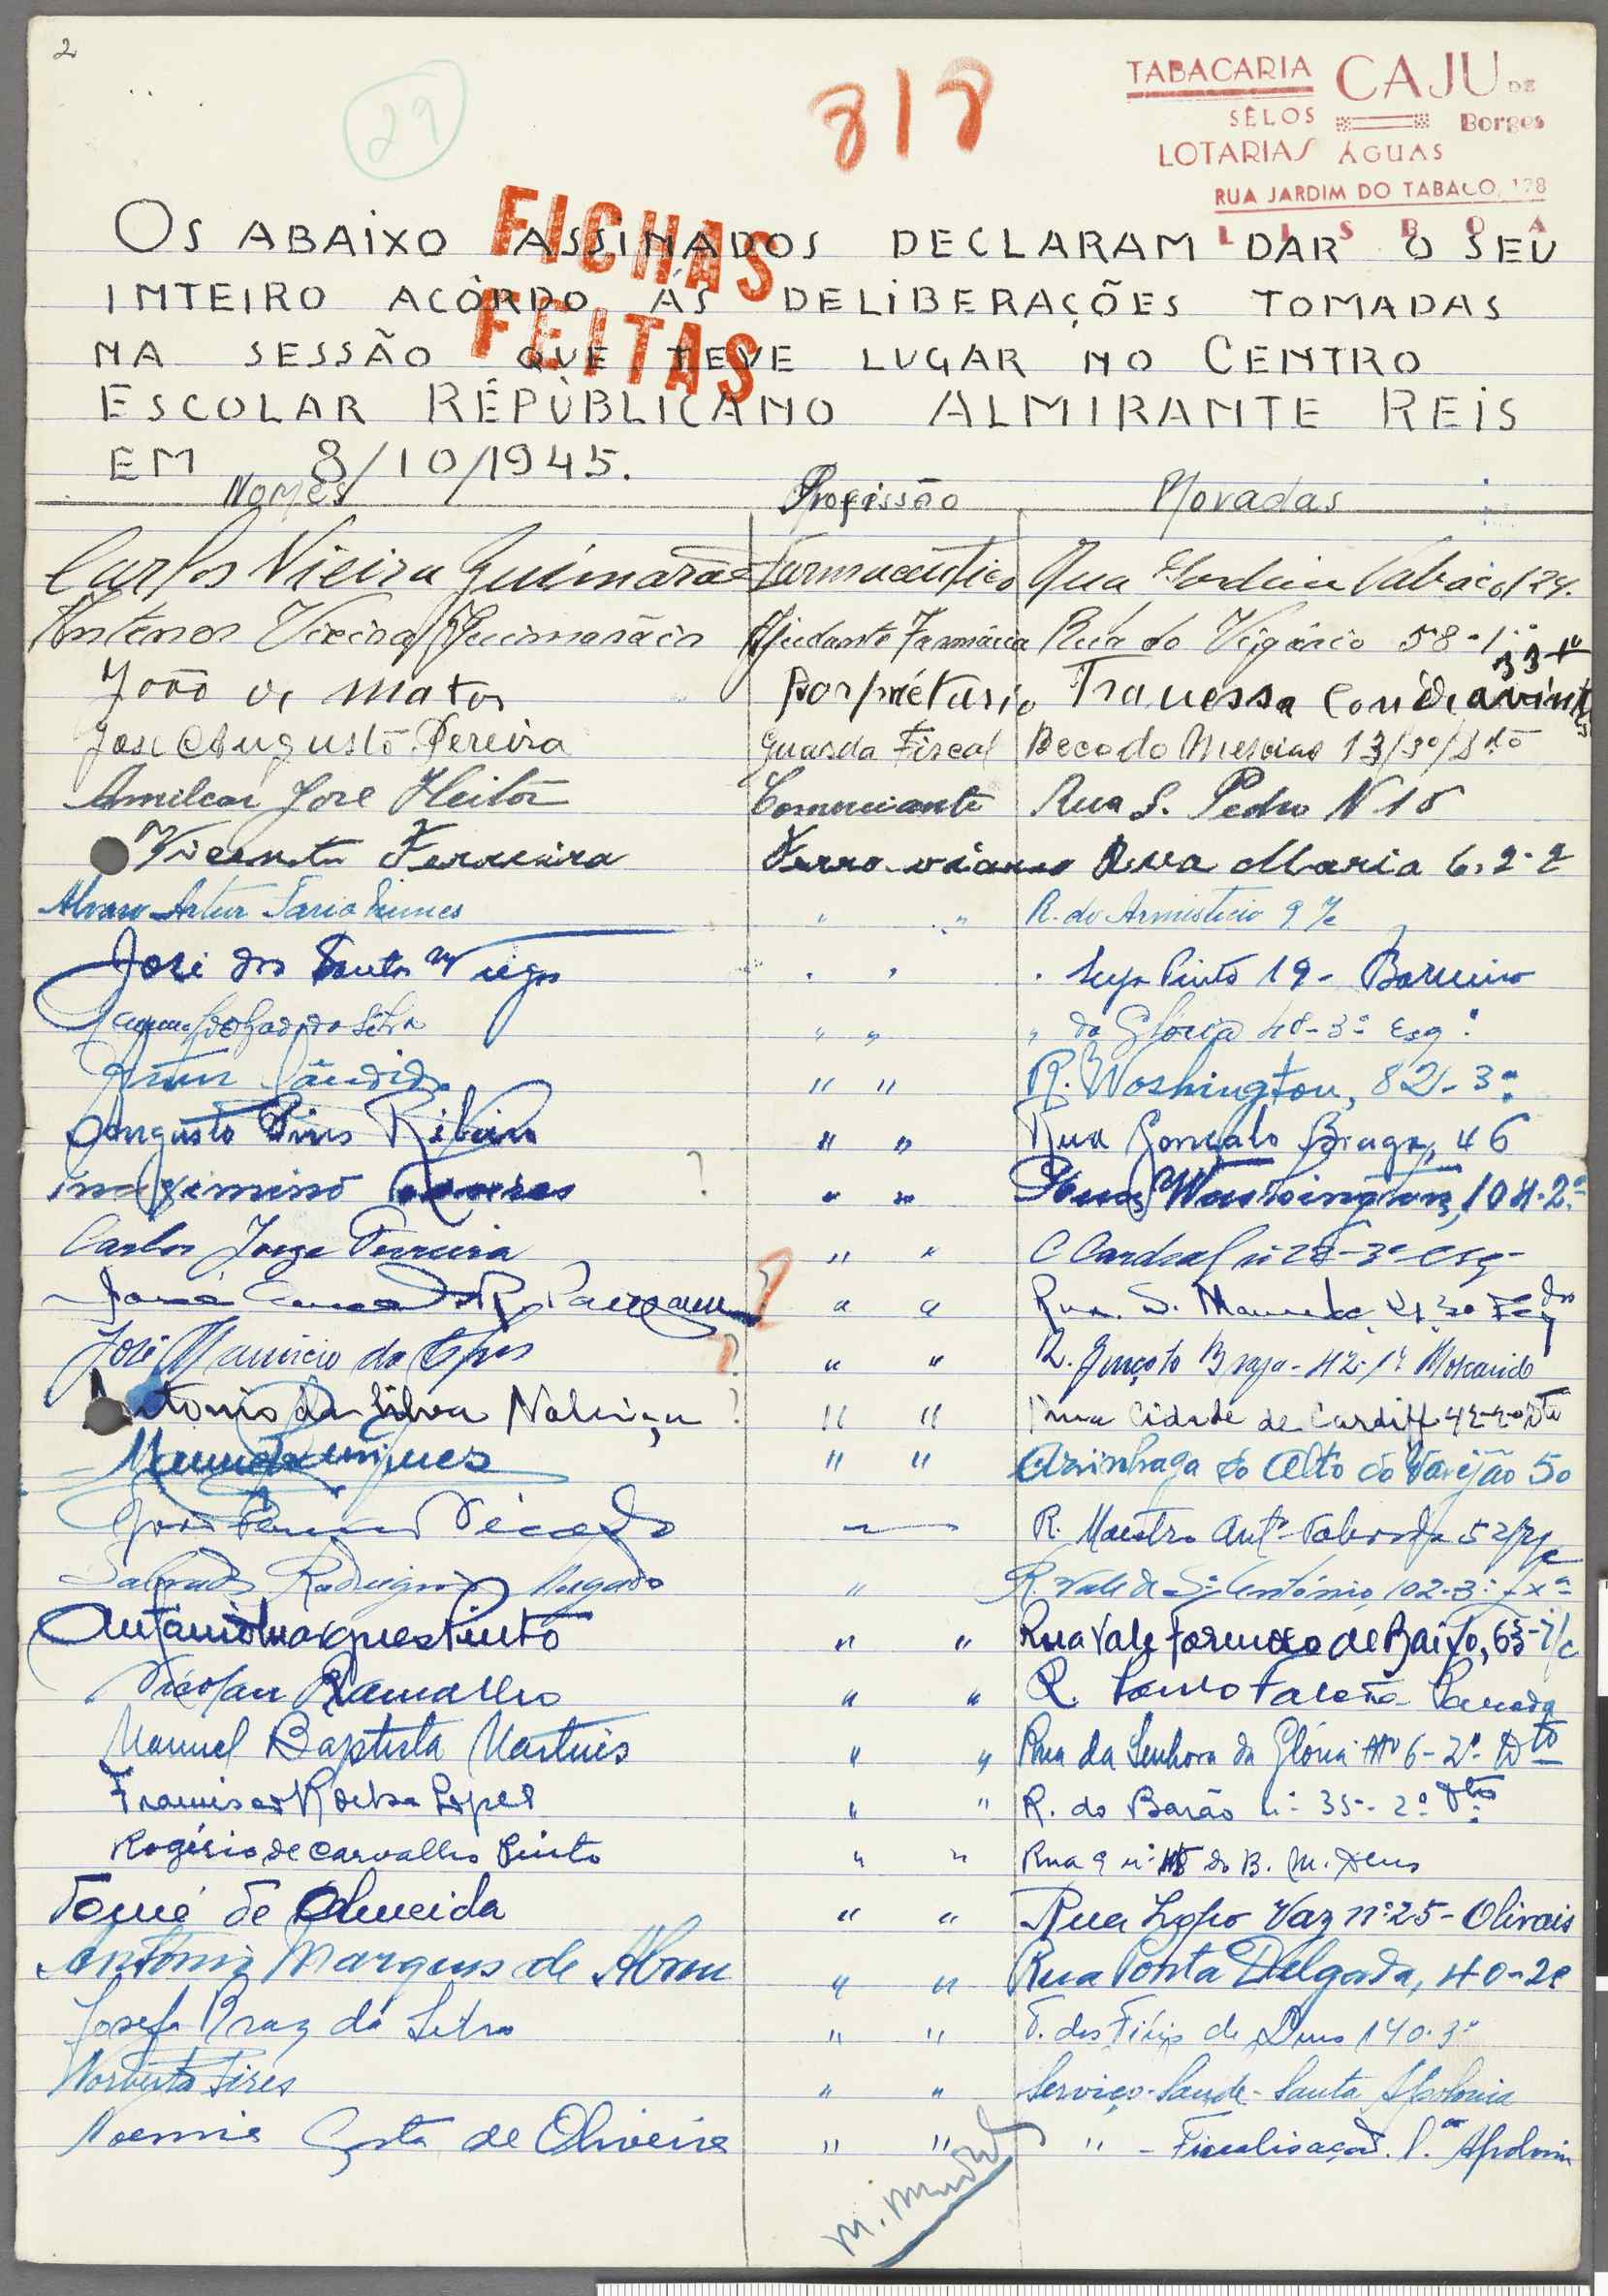 2
29
318
TABACARIA CAJU DE
SÊLOS Borges
LOTARIAS ÁGUAS
RUA JARDIM DO TABACO, 128
LISBOA
FICHAS
FEITAS
OS ABAIXO ASSINADOS DECLARAM DAR O SEU
INTEIRO ACÔRDO ÁS DELIBERAÇÕES TOMADAS
NA SESSÃO QUE TEVE LUGAR NO CENTRO
ESCOLAR RÉPÚBLICANO ALMIRANTE REIS
EM 8/10/1945.
Nomes Profissão Moradas
Carlos Vieira Guimarães Farmacêutico Rua Jardim Tabaco 124.
Antenor Vieira Guimarães Ajudante Farmácia Rua do Vigário 58-1º
João de Matos Porpriétario Travessa Conde Avintes 33 1º
José Augusto Pereira Guarda Fiscal Beco do Mexias 13/3º/Dtº
Amilcar José Heitor Comerciante Rua S. Pedro N 18
Vicente Ferreira Ferro-viario Rua Maria 6, 2-2
Alvaro Artur Faria Nunes " " R. do Armisticio 9 %
José dos Santos Viegas " " " Serpa Pinto 19 - Barreiro
da Silva " " " da Glória 48-3º Esq.
Artur Cândido " " R. Washington, 82-3º
Augusto Pires Ribeiro " " Rua Gonçalo Braga, 46
? " " Rua Washington, 104-2º
Carlos Jorge Ferreira " " C. Cardeal nº 28-3º Esq
José ? " " Rua S. Mamede 21, 3º
José Mauricio da ? " " R. Gonçalo Braga - 42-1º Moscavide
Antonio da Silva ? " " Rua Cidade de Cardiff 42-2º Dto
" " Azinhaga do Alto do Varejão 50
R. Maestro Antº Taborda 52 r/c
Rodrigues " R. Vale de Stº António, 102-3º Lxª
António Marques Pinto " " Rua Vale Formoso de Baixo, 63-r/c
Nicolau Ramalho " " R.
Manuel Baptista Martins " " Rua da Senhora da Glória Nº 6-2º Dto
Francisco Rocha Lopes " " R. do Barão nº 35-2º Dto
Rogério de Carvalho Pinto " " Rua 9 nº 18 do B. M. Deus
Tomé de Almeida " " Rua Lopo Vaz nº 25 - Olivais
António Marques de Abreu " " Rua Ponta Delgada, 40-2º
Josefa Braz da Silva " " T. dos Fiéis de Deus 140-3º
Norberto Pires " " Serviço-Saude - Santa Apolonia
Noemia Costa de Oliveira " " " - Fiscalisação. Sta Apolonia